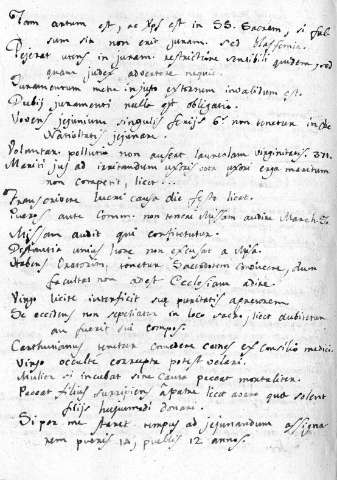 Tam certum est, ac Xps est in SS. Sacram, si fal-
sum sit non erit juram. sed blasfemia.
Pejerat utens in juram. restrictione sensibili quidem, sed
quam judex advertere nequit.
Juramentum metu injusto extortum invalidum est.
Dubij juramenti nulla est obligatio.
Vovens jejunium singulis ferijs 6is non tenetur in die
Nativitatis jejunare.
Voluntar. pollutio non aufert laureolam virginitatis. 371.
Mariti jus ad irritandum uxoris vota uxori erga maritum
non competit, licet...
Transcribere lucri causa die festo licet.
Pueros ante Comm. non teneri Missam audire March.
Missam audit qui confitetur.
Distantia unius horae non excusat a Missa.
Habens Oratorium, tenetur Sacerdotem conducere, dum
facultas non adest Ecclesiam adire.
Virgo licite interficit suae puritatis agressorem
Se occidens non sepeliatur in loco sacro, licet dubitetur
an fuerit sui compos.
Carthusianus tenetur comedere carnes ex consilio medici.
Virgo occulte corrupta potest velari.
Mulier si incubat sine causa peccat mortaliter.
Peccat filius surripiens a patre licet aere quae solent
filijs hujusmodi donare.
Si per me staret tempus ad jejunandum assigna-
rem pueris 14, puellis 12 annos.